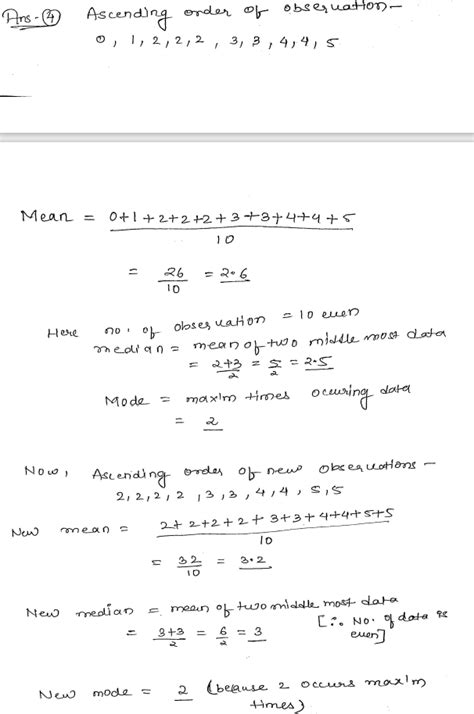 Ans-(4) Ascending order of observation-
0, 1, 2, 2, 2, 3, 3, 4, 4, 5
Mean = 0+1+2+2+2+3+3+4+4+5
10
= 26/10 = 2.6
Here no. of observation = 10 even
median = mean of two middle most data
= 2+3/2 = 5/2 = 2.5
Mode = maxim times occuring data
= 2
Now, Ascending order of new observations -
2, 2, 2, 2, 3, 3, 4, 4, 5, 5
New mean = 2+2+2+2+3+3+4+4+5+5
10
= 32/10 = 3.2
New median = mean of two middle most data
= 3+3/2 = 6/2 = 3 [∴ No. of data is even]
New mode = 2 (because 2 occurs maxim times)